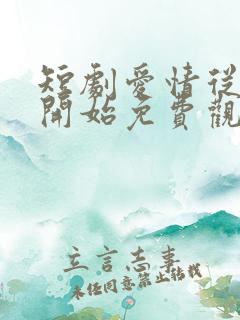 短劇愛情從
開始免費觀
立言志事
未經同意禁止轉載